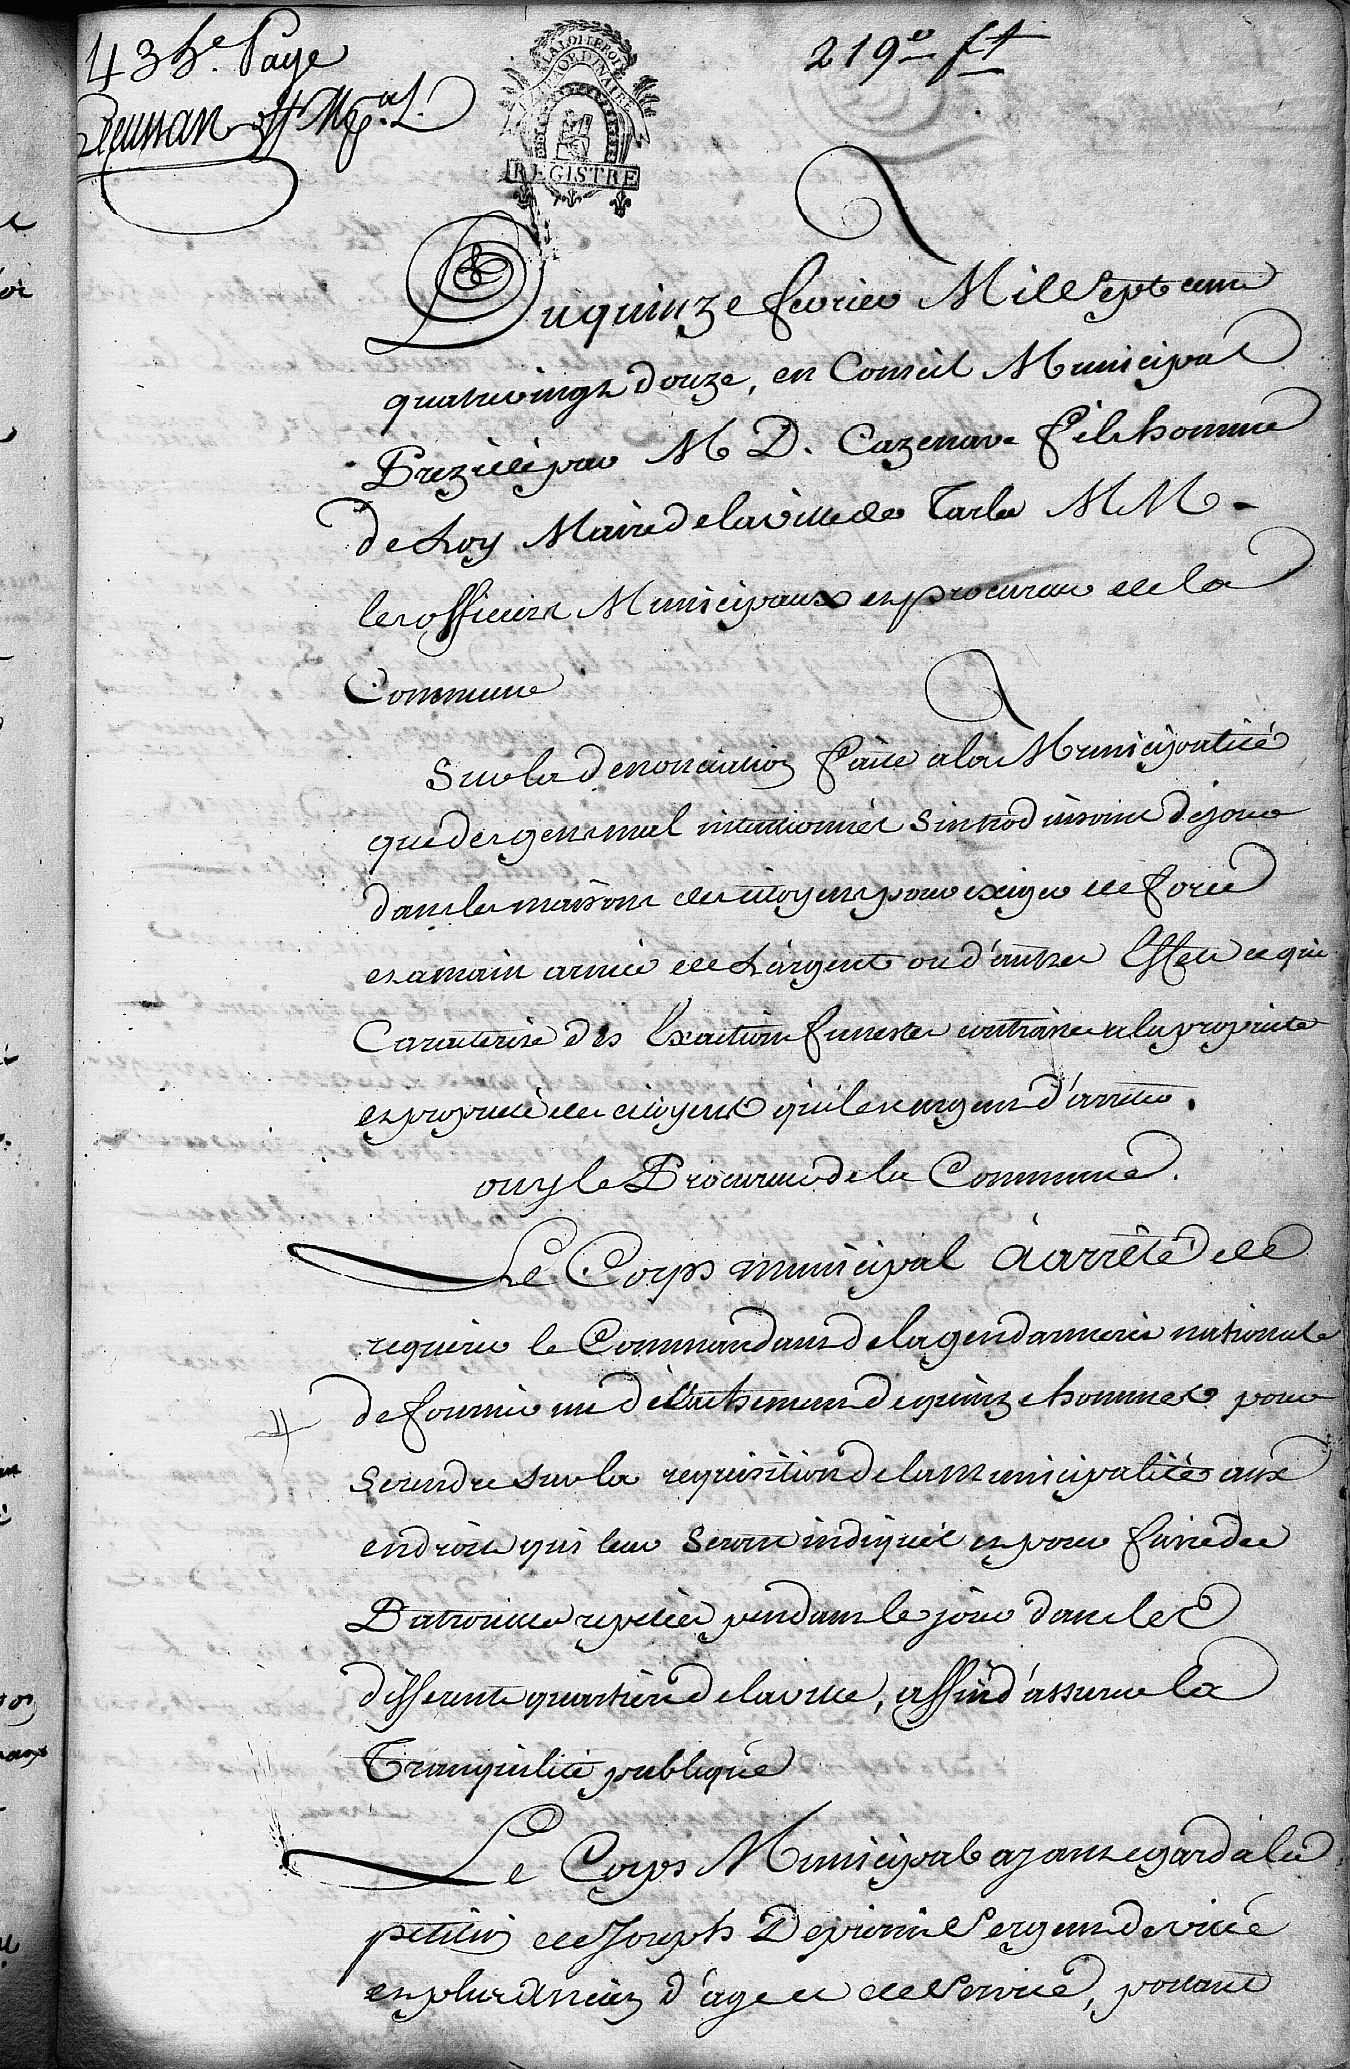 435.e Page
219.e ft
LA LOI LE ROI
EXTRAORDINAIRE
REGISTRE
Du quinze fevrier Mil Sept cent
quatrevingt douze, en Conseil Municipal
Prezidé par M D. Cazenave filhomme
de Loy Maire de la ville de Tarbe MM
les officiers Municipaux et procureur de la
Commune
Sur la denonciation faite a la Municipalité
que des gens mal intentionnés s'introduisoint de jour
dans les maisons des citoyens pour exiger de force
et a main armée de L'argent ou d'autres Effets ce qui
Caracterise des Exactions funestes contraires a la propriete
et propriété des citoyens qu'il est urgent d'arreter.
ouy le Procureur de la Commune.
Le Corps municipal à arrêté de
requerir le Commandant de la gendarmerie nationale
de fournir un détachement de quinze hommes pour
se rendre sur la requisition de la municipalité aux
endroits qui leur seront indiqués et pour faire des
Patrouilles repetées pendant le jour dans les
differents quartiers de la ville, affin d'assurer la
Tranquilité publique
Le Corps Municipal ayant egard à la
petition de Joseph Depierris Sergent de ville
et plus Ancien d'age et de Service, portant